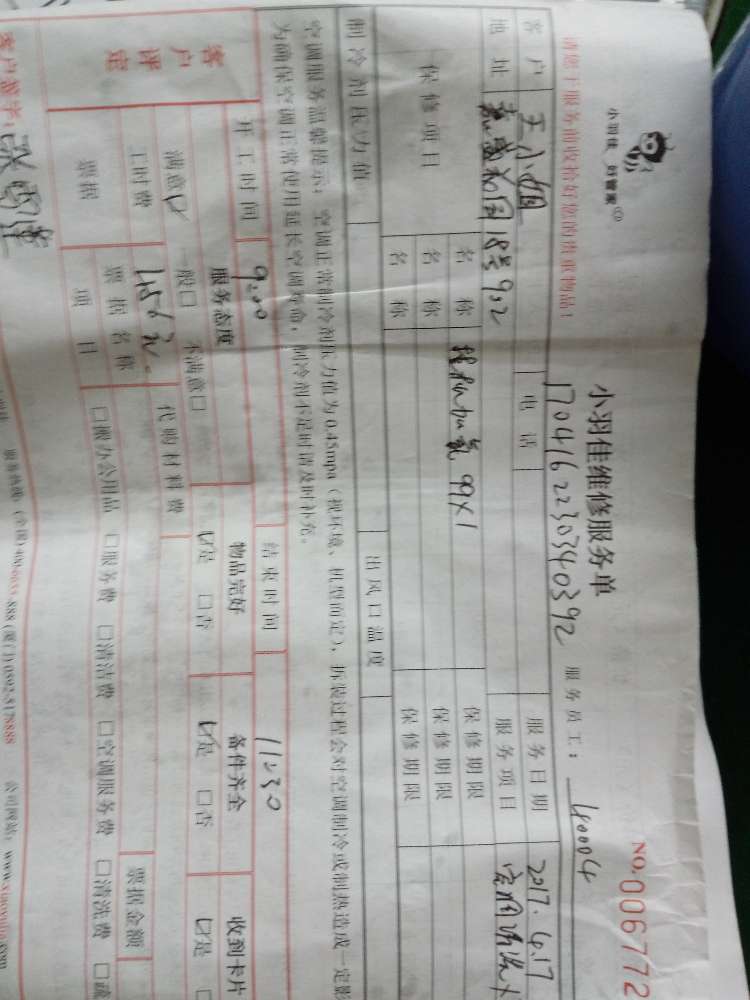 小羽佳 好管家
小羽佳维修服务单
NO.006772
17041622303540392
服务员工: 40004
请您于服务前收拾好您的贵重物品!
客户 王小姐 电话 服务日期 2017.4.17
地址 嘉盛花园18号902 服务项目 空调清洗
保修项目
名称 加氟 99X1 保修期限
名称 保修期限
名称 保修期限
制冷剂压力值 出风口温度
空调服务温馨提示: 空调正常制冷剂压力值为0.45mpa(视环境、机型而定), 拆装过程会对空调制冷或制热造成一定影
为确保空调正常使用延长空调寿命, 制冷剂不足时请及时补充。
开工时间 9:00 结束时间 11:30
客户评定
服务态度 物品完好 备件齐全 收到卡片
满意☑ 一般□ 不满意□ ☑是 □否 ☑是 □否 ☑是
工时费 456元 代购材料费
票据 票据名称 票据金额
项目 □搬办公用品 □服务费 □清洁费 □空调服务费 □清洗费 □疏
客户签字:
服务热线: (全国)400-6633-888 (厦门)0592-8178888 公司网站: